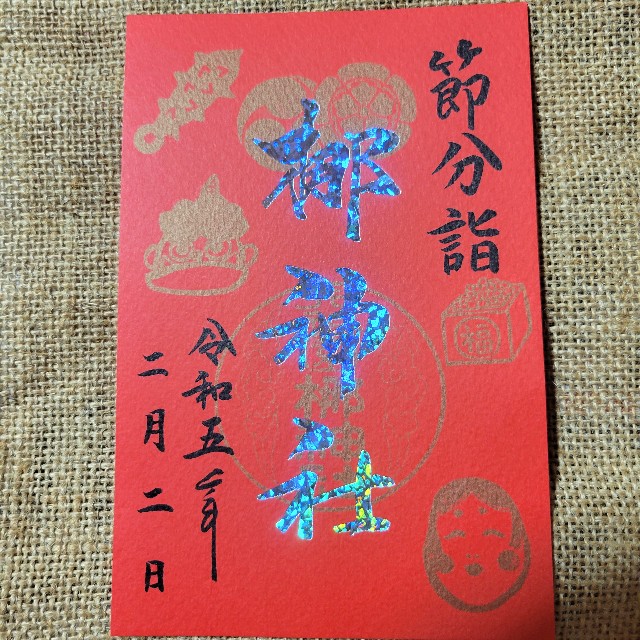 節分詣
梛神社
令和五年
二月二日
福